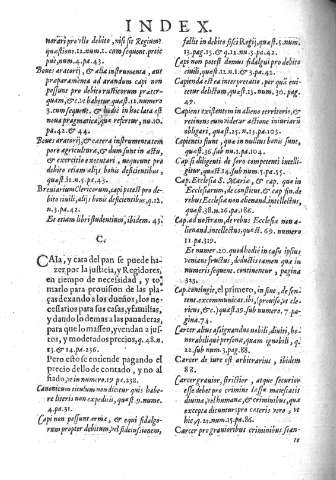 INDEX.
morari pro vllo debito, nisi sit Regium?
quæstione.12.num.1. cum sequent. preit
pue, num.4. pa.43.
Boues aratorij, & alia instrumenta, aut
præparamenta ad arandum capi non
possunt pro debito rusticorum præter-
quam, & c. vt habetur quæst.12. numero
3. cum sequent. & hodie in hoc lata est
noua pragmatica, quæ refertur, nu.10.
pa.42.&.44.
Boues aratorij, & cætera instrumenta tem
pore agriculturæ, & dum sunt in actu,
& exercitio executari, nequeunt pro
debito etiam alijs bonis deficientibus,
quæst.12.n.1. pa.42.
Breuiarium Clericorum, capi potest pro de-
bito ciuili, alijs bonis deficientibus, q.12.
n.3. pa.42.
Et etiam libri studentium, ibidem. 43.
C.
CAsa, y cata del pan se puede ha-
zer por la justicia, y Regidores,
en tiempo de necesidad, y to-
marlo para prouision de las pla-
ças dexando a los dueños, los ne-
cessarios para sus casas, y familias,
y dandolo demas a las panaderas,
para que lo massen, y vendan a jus-
tos, y moderados precios, q.48.n.
13 & 14. pa.236.
Pero esto se entiende pagando el
precio dello de contado, y no al
fiado, vt in numero 19 pa.238.
Canonicum titulum non dicitur quis habe-
re literis non expeditis, quæst.9. nume.
4. pa.31.
Capi non possunt arma, & equi fidalgo-
rum propter debitum, vel fideiussionem,
fallit in debito fisci Regij, quæst.5. num.
13. pag.43. & q.12.nu.3. pa.42.
Capi non potest domus fidalgi pro debito
ciuili, quæst.12. n.1. & 2. pa.42.
Capienda est ea interpretatio, per quā euit
tetur delictum quæst.23. num.20. pag.
49.
Capiens existentem in alieno territorio, &
retinens eum videtur actione iniuriarū
obligari, quæst.25. n.13. pa.103.
Capiencis sunt, qua in nullius bonis sunt,
quæst.36. sub nu.2. pa.104.
Cap. si diligenti de foro competenti intelli-
gitur, quæst.24. sub num.5. pa.15.
Cap. Ecclesia S. Mariæ, & cap. que in
Ecclesiarum, de constitut. & cap fin. de
rebus Ecclesiæ non alienand. intellectus,
quæst.38. n.26. pa.186.
Cap. ad nostram, de rebus Ecclesiæ non a-
alienand. intellectus, quæst. 69. numero
11. pa.319.
Et numero 20. quod hodie in casu ipsius
veniant fructus, deductis tamen qua in
numeris sequent. continentur, pagina
323.
Cap. contingit, el primero, in fine, de sen-
tent. excommunicat. ibi, prouiso, vt cle
ricus, & c.) quæst. 27. numero 7. pa-
gina 74.
Carcer alius assignandus nobili, diuiti, ho-
norabilique personæ, quam ignobili, q.
22. sub num.3. pag.88.
Carcer de iure est arbitrarius, ibidem
88.
Carcer grauior, strictior, atque securior
esse debet pro crimine læsæ maiestatis
diuinæ, vel humanæ, & criminibus, quæ
excepta dicuntur pro cæteris vero , vt
hic, q.21. num.15. pa.86.
Carcer pro grauioribus criminibus stan-